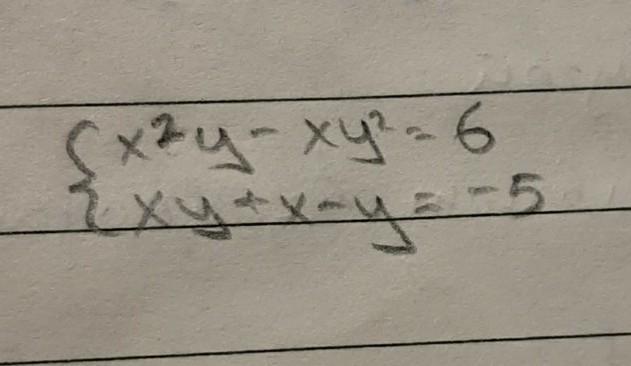 x²y - xy² = 6
xy + x - y = -5